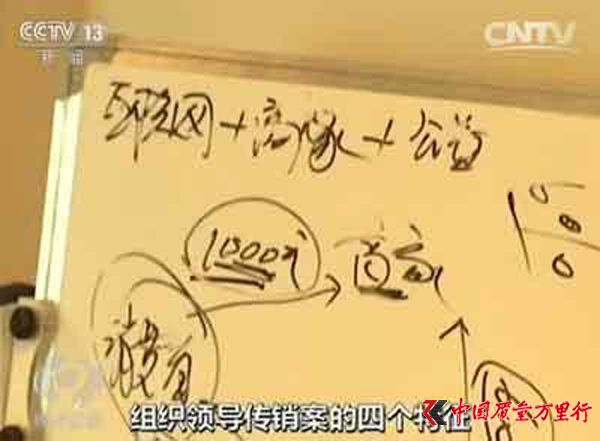 CCTV 13
新闻
CNTV
互联网+商家+公益
1000元
商家
消费者
组织领导传销案的四个特征
中国质量万里行